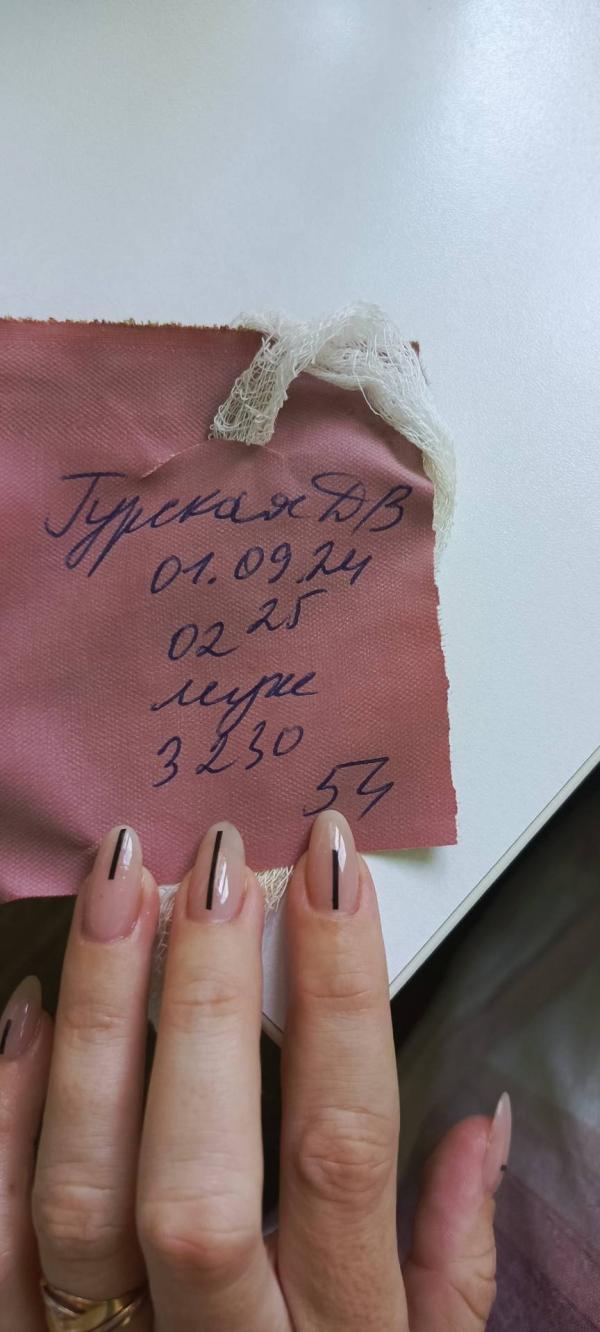 Гурская ДВ
01.09.24
02 25
муж
3230
54